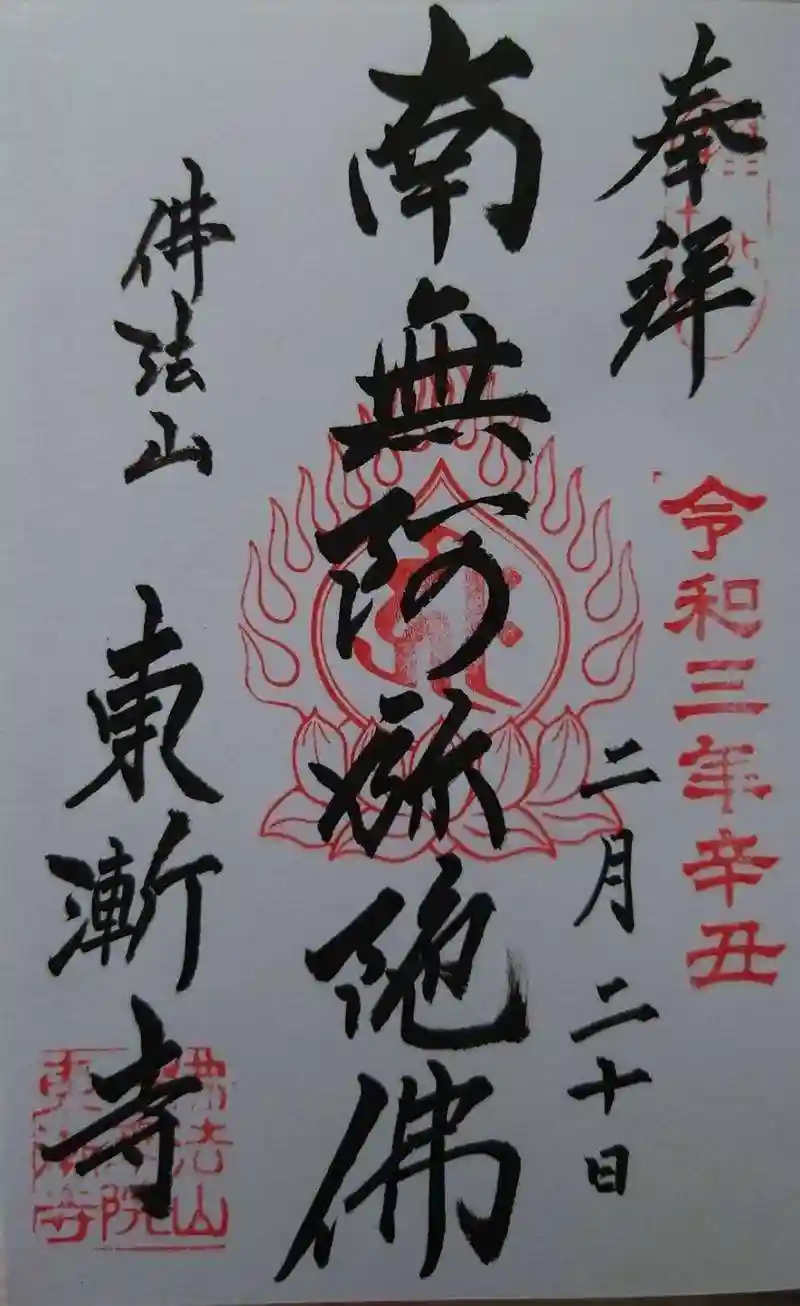 奉拝
令和三年辛丑
二月二十日
南無阿弥陀佛
佛法山
東漸寺